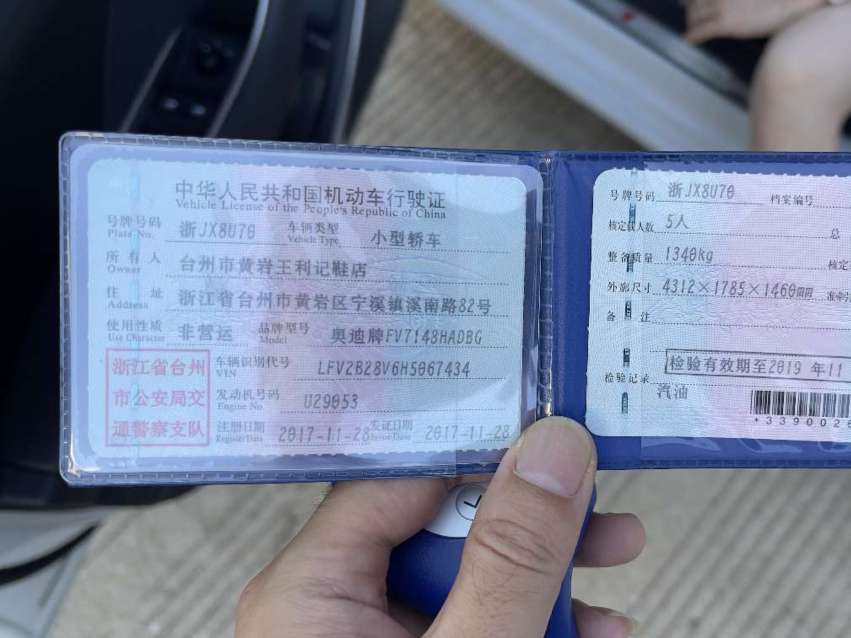 中华人民共和国机动车行驶证
Vehicle License of the People's Republic of China
号牌号码 浙JX8U70 车辆类型 小型轿车
Plate No. Vehicle Type
所有人 台州市黄岩王利记鞋店
Owner
住址 浙江省台州市黄岩区宁溪镇溪南路82号
Address
使用性质 非营运 品牌型号 奥迪牌FV7148HADBG
Use Character Model
浙江省台州
市公安局交
通警察支队
车辆识别代号 LFV2B28V6H5067434
VIN
发动机号码 U29053
Engine No.
注册日期 2017-11-28 发证日期 2017-11-28
Register Date Issue Date
号牌号码 浙JX8U70 档案编号
核定载人数 5人 总
整备质量 1340kg 核定
外廓尺寸 4312×1785×1460mm 准牵
备注
检验有效期至2019 年11
检验记录
汽油
+3390026